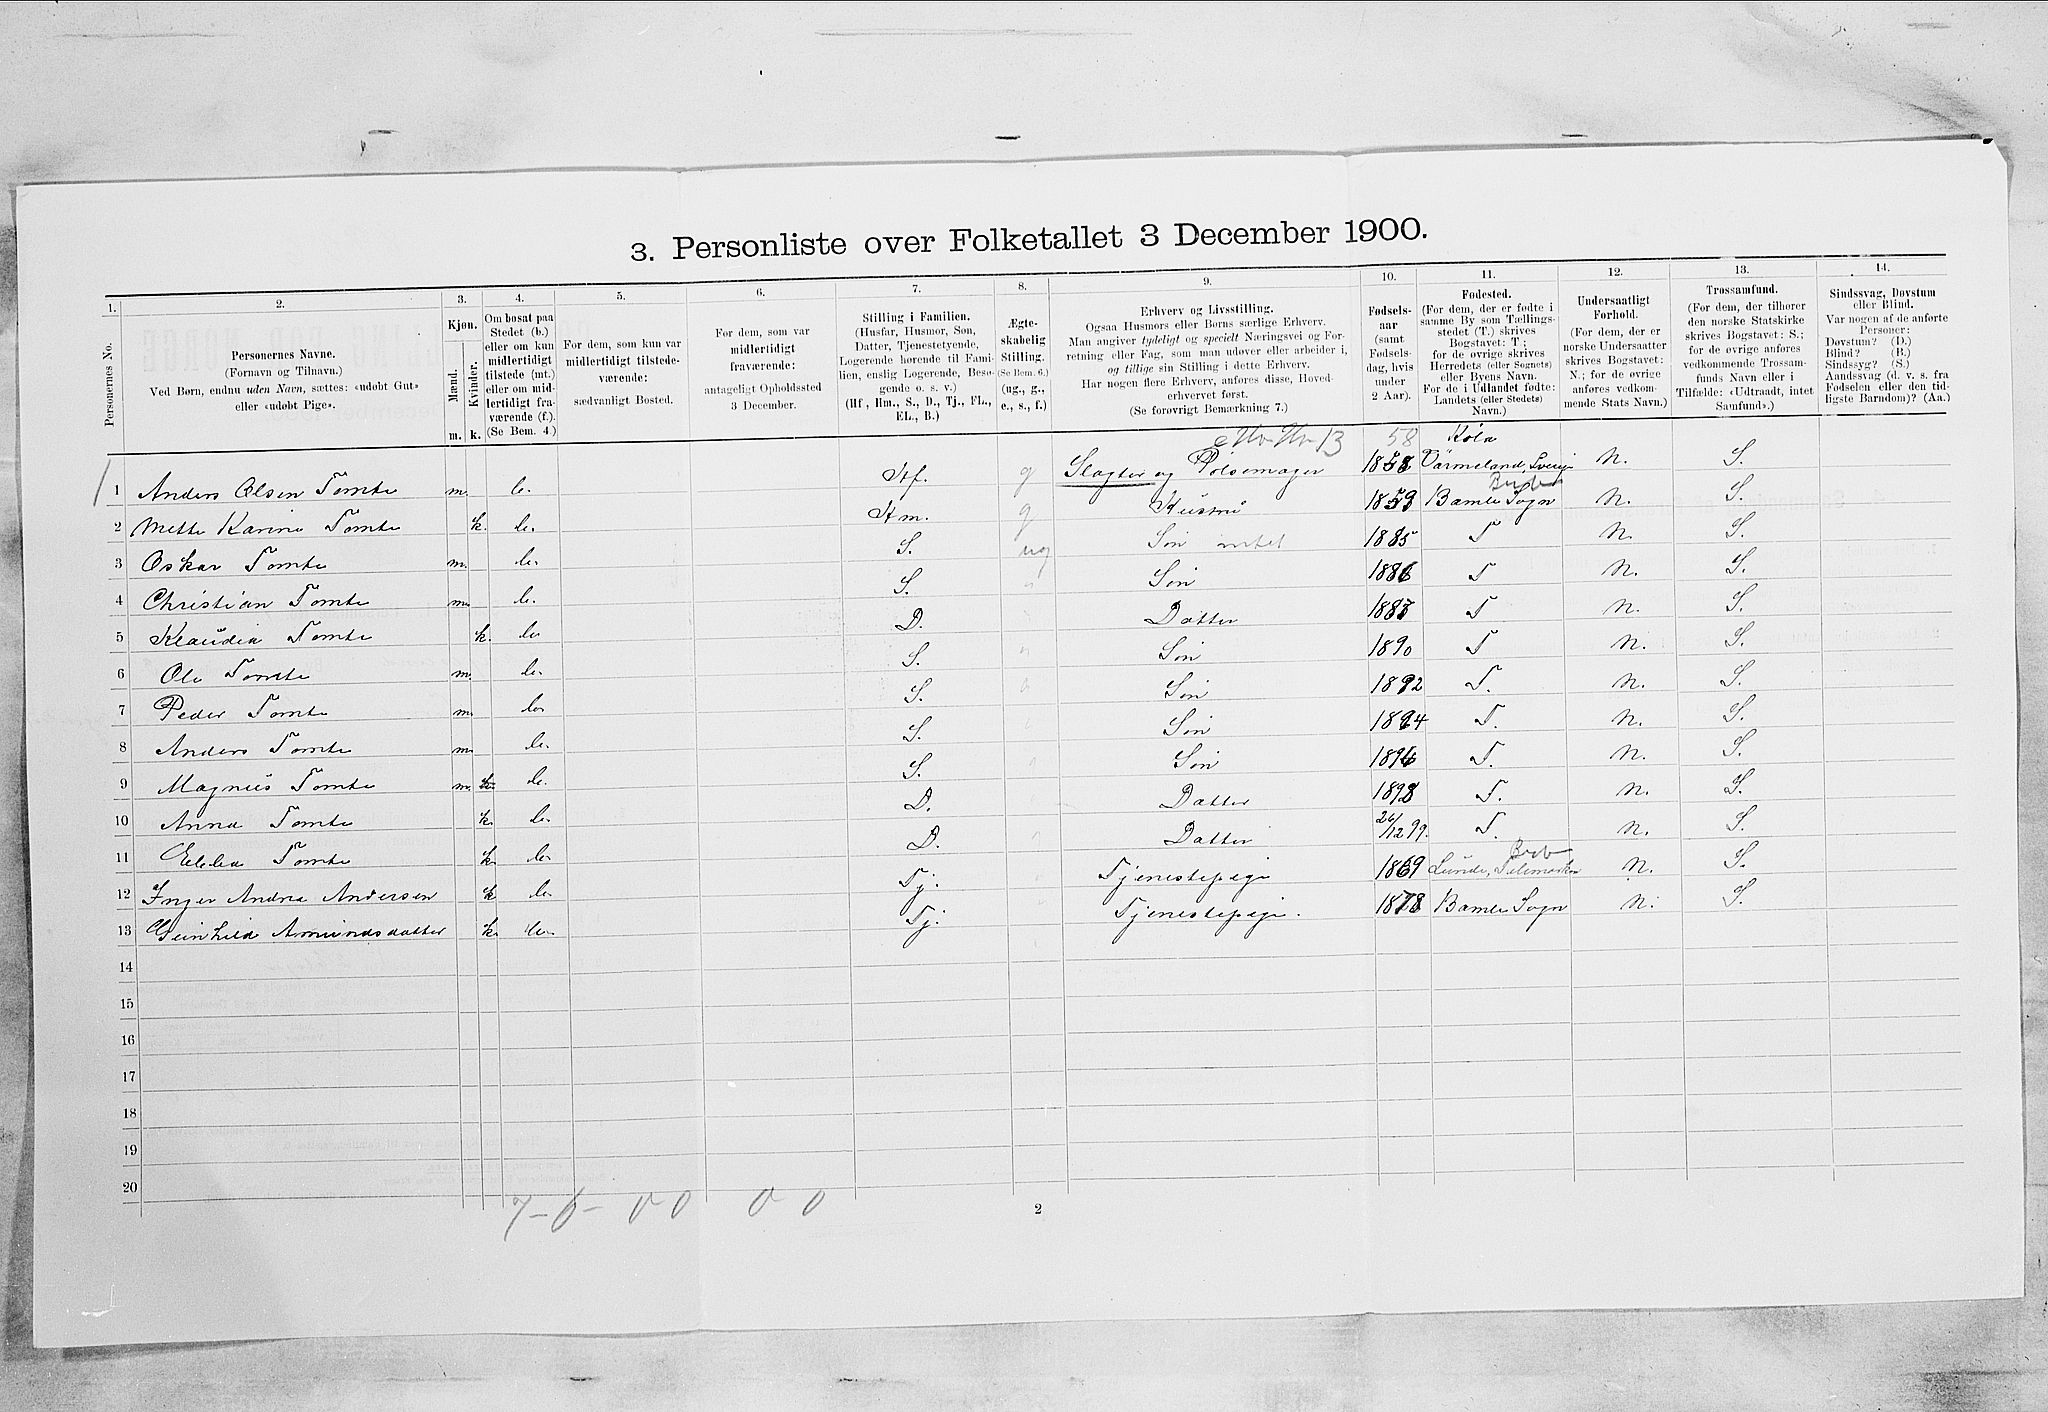 3. Personliste over Folketallet 3 December 1900.
1. 2. 3. 4. 5. 6. 7. 8. 9. 10. 11. 12. 13. 14.
Personernes No.
Personernes Navne.
(Fornavn og Tilnavn.)
Ved Børn, endnu uden Navn, sættes: «udøbt Gut»
eller «udøbt Pige».
Kjøn.
Mænd.
Kvinder.
m. k.
Om bosat paa
Stedet (b.)
eller om kun
midlertidigt
tilstede (mt.)
eller om mid-
lertidigt fra-
værende (f.).
(Se Bem. 4.)
For dem, som kun var
midlertidigt tilstede-
værende:
sædvanligt Bosted.
For dem, som var
midlertidigt
fraværende:
antageligt Opholdssted
3 December.
Stilling i Familien.
(Husfar, Husmor, Søn,
Datter, Tjenestetyende,
Logerende hørende til Fami-
lien, enslig Logerende, Besø-
gende o. s. v.)
(Hf., Hm., S., D., Tj., FL.,
EL., B.)
Ægte-
skabelig
Stilling.
(Se Bem. 6.)
(ug., g.,
e., s., f.)
Erhverv og Livsstilling.
Ogsaa Husmors eller Børns særlige Erhverv.
Man angiver tydeligt og specielt Næringsvei og For-
retning eller Fag, som man udøver eller arbeider i,
og tillige sin Stilling i dette Erhverv.
Har nogen flere Erhverv, anføres disse, Hoved-
erhvervet først.
(Se forøvrigt Bemærkning 7.)
Fødsels-
aar
(samt
Fødsels-
dag, hvis
under
2 Aar).
Fødested.
(For dem, der er fødte i
samme By som Tællings-
stedet (T.) skrives
Bogstavet: T;
for de øvrige skrives
Herredets (eller Sognets)
eller Byens Navn.
For de i Udlandet fødte:
Landets (eller Stedets)
Navn.)
Undersaatligt
Forhold.
(For dem, der er
norske Undersaatter
skrives Bogstavet:
N.; for de øvrige
anføres vedkom-
mende Stats Navn.)
Trossamfund.
(For dem, der tilhører
den norske Statskirke
skrives Bogstavet: S.;
for de øvrige anføres
vedkommende Trossam-
funds Navn eller i
Tilfælde: «Udtraadt, intet
Samfund».)
Sindssvag, Døvstum
eller Blind.
Var nogen af de anførte
Personer:
Døvstum? (D.)
Blind? (B.)
Sindssyg? (S.)
Aandssvag (d. v. s. fra
Fødselen eller den tid-
ligste Barndom)? (Aa.)
13 58 Köla
1 Anders Olsen Tomte m. b. Hf. g Slagter og Pølsemager 1858 Värmeland, Sverige N. S.
2 Mette Karine Tomte k. b. Hm. g Hustru 1859 Bamle Sogn N. S.
3 Oskar Tomte m. b. S. ug Søn intet 1885 T N. S.
4 Christian Tomte m. b. S. Søn 1886 T N. S.
5 Klaudia Tomte k. b. D. Datter 1887 T N. S.
6 Ole Tomte m. b. S. Søn 1890 T N. S.
7 Peder Tomte m. b. S. Søn 1892 T. N. S.
8 Anders Tomte m. b. S. Søn 1894 T. N. S.
9 Magnus Tomte m. b. S. Søn 1896 T. N. S.
10 Anna Tomte k. b. D. Datter 1898 T. N. S.
11 Ebba Tomte k. b. D. Datter 26/12 99. T. N. S.
12 Inger Andrea Andersen k b. Tj. Tjenestepige 1869 Lunde, Telemarken N. S.
13 Gunhild Amundsdatter k. b. Tj. Tjenestepige. 1878 Bamle Sogn N. S.
14
15
16
17
18
19
20
7-6- 0 0 0 0
2